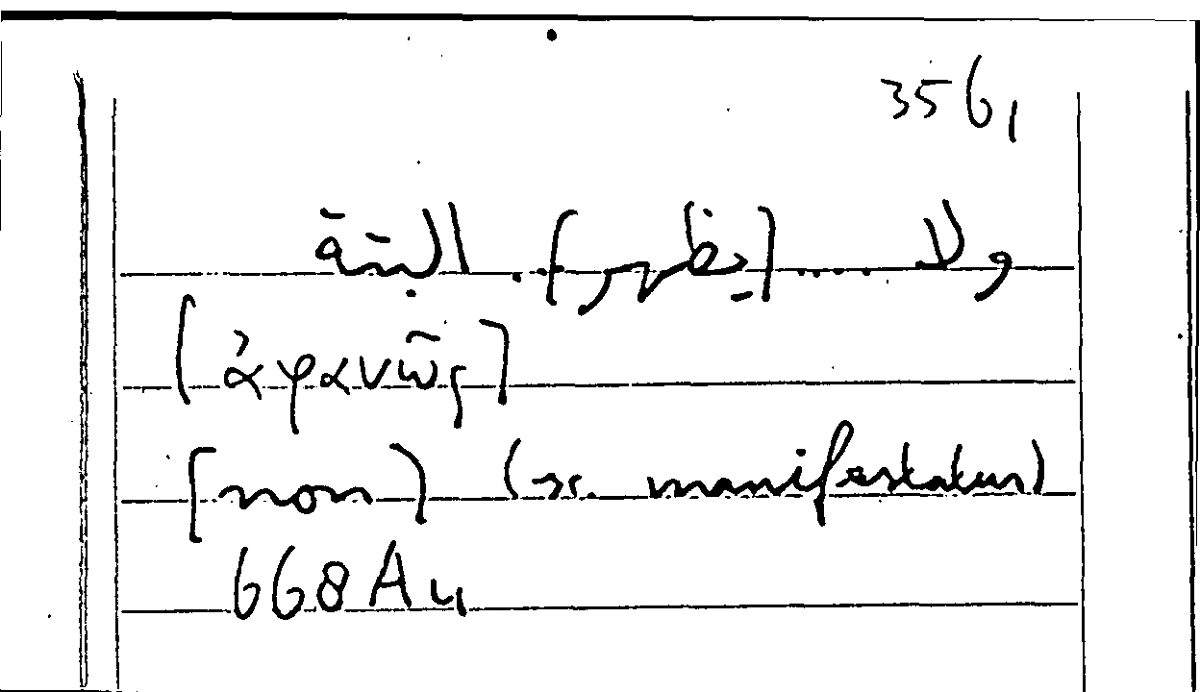 356,
ولا .... [يظهر] ... البتّة
[ἀφανῶς]
[non] (sc. manifestatur)
668A4